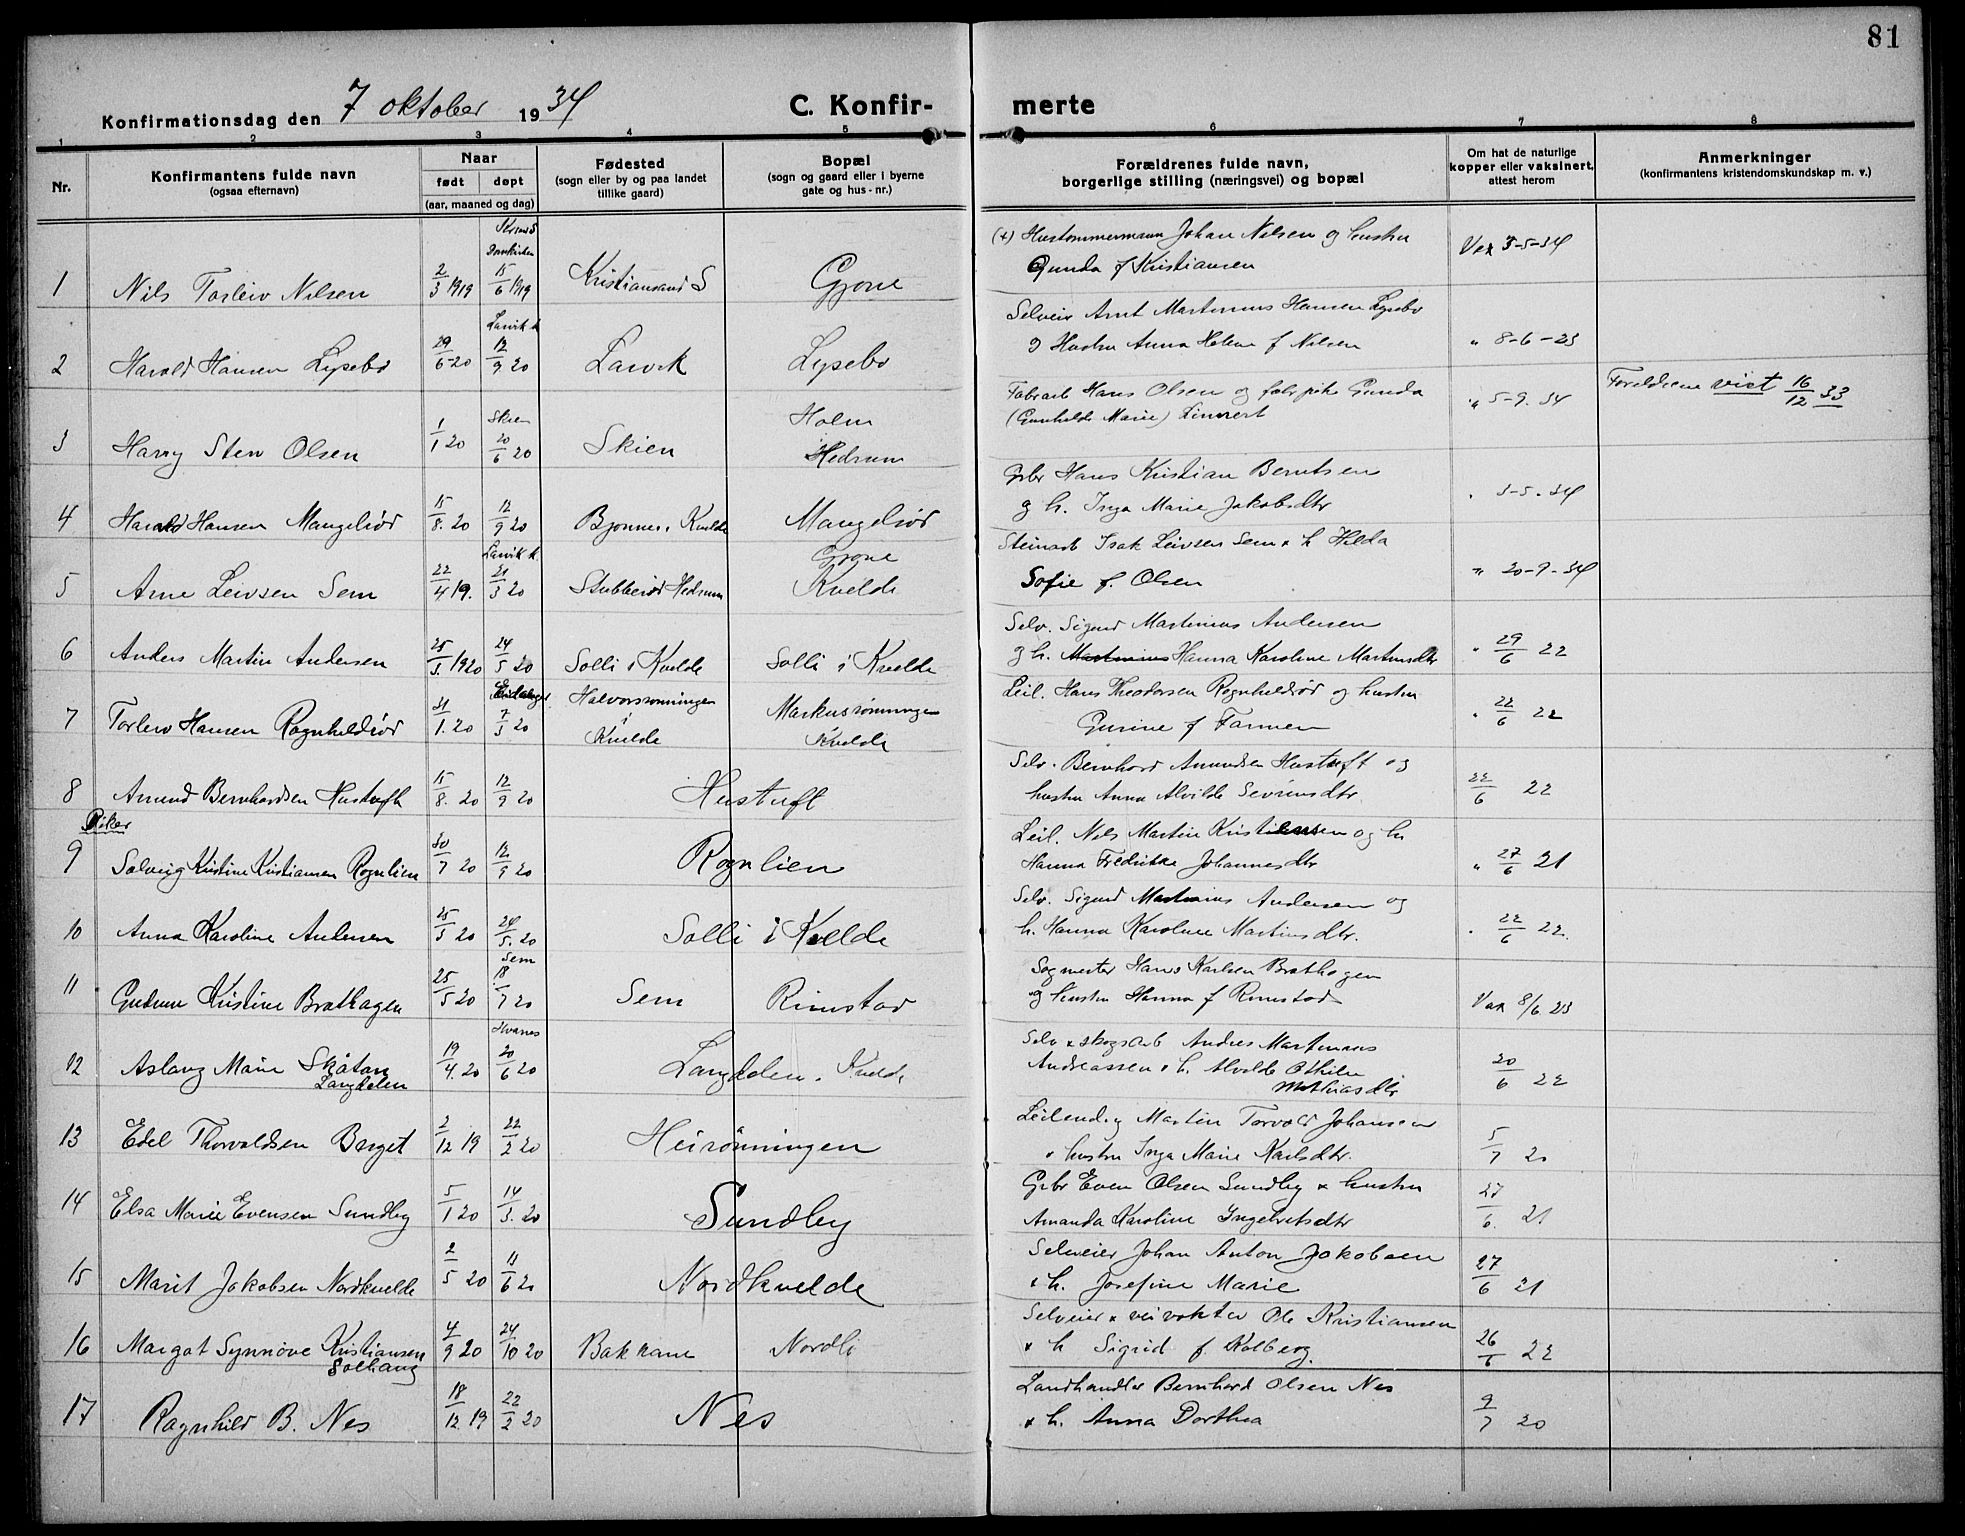 81
Konfirmationsdag den 7 oktober 1934 C. Konfir- merte
1 2 3 4 5 6 7 8
Nr. Konfirmantens fulde navn (ogsaa efternavn) Naar født døpt (aar, maaned og dag) Fødested (sogn eller by og paa landet tillike gaard) Bopæl (sogn og gaard eller i byerne gate og hus-nr.) Forældrenes fulde navn, borgerlige stilling (næringsvei) og bopæl Om hat de naturlige kopper eller vaksinert, attest herom Anmerkninger (konfirmantens kristendomskundskap m. v.)
1 Nils Torleiv Nilsen 2/3 1919 15/6 1919 Kristiansand S Gjone (+) Hustømmermann Johan Nilsen og hustru
Gunda f. Kristiansen Vax 3-5-34
2 Harald Hansen Lysebo 29/6-20 Larvik 12/9 20 Larvik Lysebo Selveier Arnt Martinius Hansen Lysebo
og Hustru Anna Helene f Nilsen " 8-6-23
3 Harry Sten Olsen 1/1 20 Skien 20/6 20 Skien Holm Hedrum Fabrarb Hans Olsen og fabr pike Gunda
(Gunhilde Marie) Linnert " 5-9-34 Foreldrene viet 16/12 33
4 Harald Hansen Mangelrød 15/8 20 12/9 20 Bjønnes, Kvelde Mangelrød Gbr Hans Kristian Berntsen
og h. Inga Marie Jakobsdtr " 3-5-34
5 Arne Leivsen Sem 22/4 19. Larvik 21/3 20 Stubberød Hedrum Gjone Kvelde Steinarb Isak Leivsen Sem & h Hilda
Sofie f. Olsen " 20-9-34
6 Anders Martin Andersen 25/3 1920 24/5 20 Solli i Kvelde Solli i Kvelde Selv. Sigurd Martinius Andersen
og h. Hanna Karoline Martinsdtr " 29/6 22
7 Torleiv Hansen Ragnhildrød 31/1 20 7/3 20 Halvorsrønningen i Kvelde Markusrønningen Kvelde Leil. Hans Theodorsen Ragnhildrød og hustru
Gurine f Farmen " 22/6 22
8 Amund Bernhardsen Hustuft 15/8 20 12/9 20 Hustuft Selv. Bernhard Amundsen Hustuft og
hustru Anna Alvilde Severinsdtr 22/6 22
Piker
9 Solveig Kristine Kristiansen Rognlien 30/7 20 12/9 20 Rognlien Leil. Nils Martin Kristiansen og h
Hanna Fredrikke Johannesdtr " 27/6 21
10 Anna Karoline Andersen 25/3 20 24/5 20 Solli i Kvelde Selv. Sigurd Martinius Andersen og
h. Hanna Karoline Martinsdtr. " 22/6 22.
11 Gudrun Kristine Brathagen 25/5 20 Sem 18/7 20 Sem Rimstad Sagmester Hans Karlsen Brathagen
og hustru Hanna f Rimstad Vax 8/6 23
12 Aslaug Marie Skåtan Langdalen 19/4 20 20/6 20 Langdalen, Kvelde Selv & skogsarb Andres Martinius
Andreassen & h. Alvilde Othilie
Mathiasdtr 20/6 22
13 Edel Thorvaldsen Berget 2/12 19 22/2 20 Heirønningen Leilending Martin Torvald Johansen
& hustru Inga Marie Karlsdtr. 5/7 20
14 Elsa Marie Evensen Sundby 5/1 20 14/3 20 Sundby Gbr Even Olsen Sundby & hustru
Amanda Karoline Ingebretsdtr 27/6. 21
15 Marit Jakobsen Nordkvelde 2/5 20 11/6 20 Nordkvelde Selveier Johan Anton Jakobsen
& h. Josefine Marie 27/6 21
16 Margot Synnøve Kristiansen Solhaug 4/9 20 24/10 20 Bakkane Nordli Selveier & veivokter Ole Kristiansen
& h Sigrid f. Kolberg. 26/6 22
17 Ragnhild B. Nes 18/12 19 22/2 20 Nes Landhandler Bernhard Olsen Nes
& h. Anna Dorthea 9/7 20